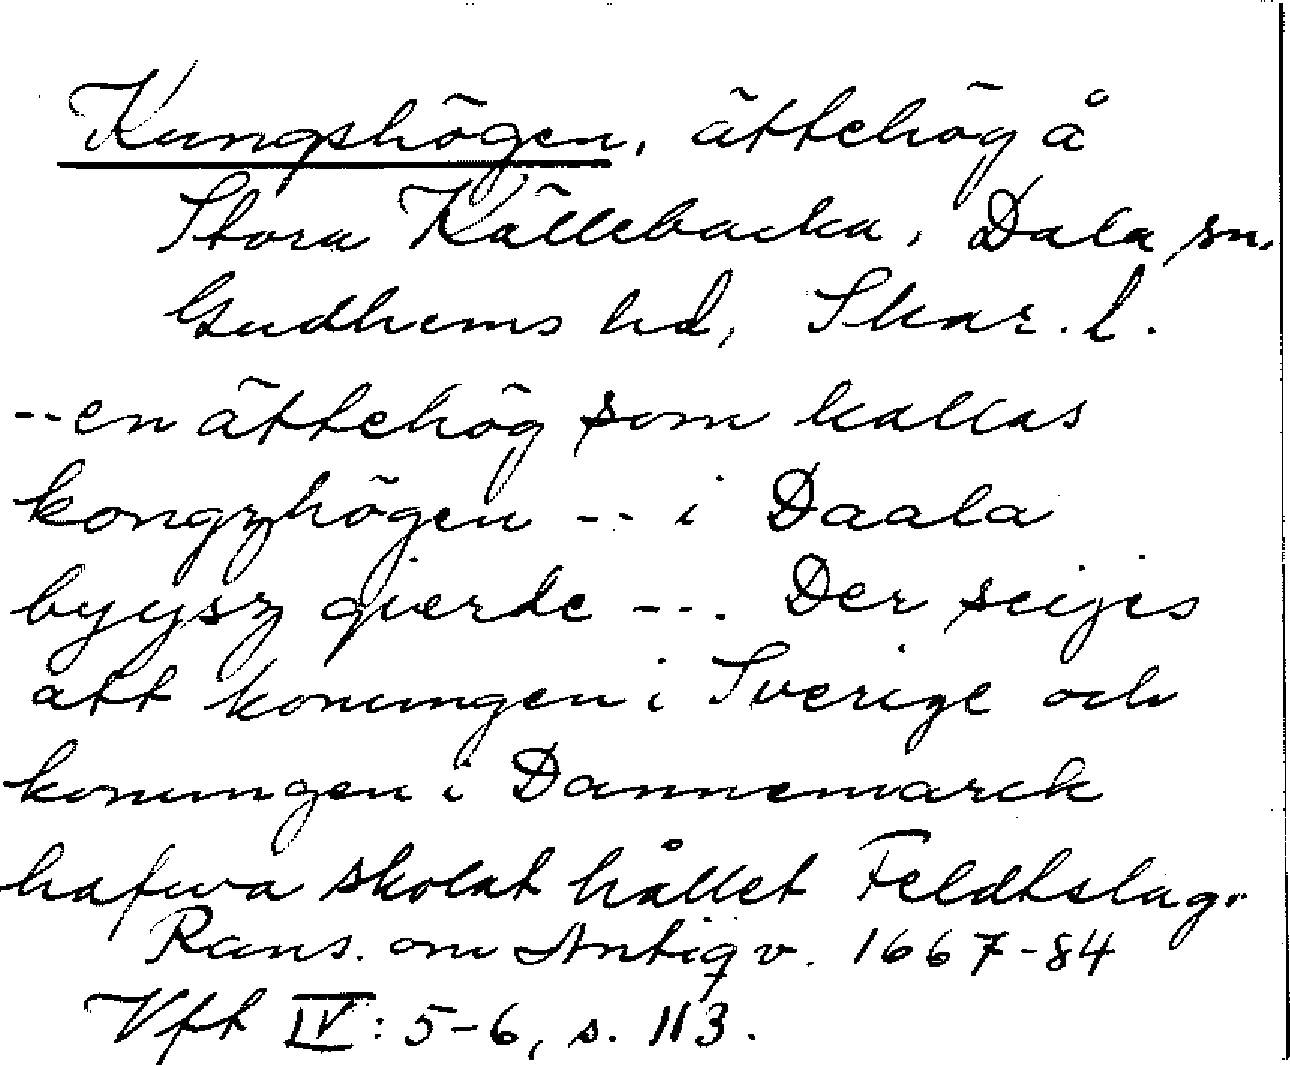 Kungshögen, ättehög å
Stora Källebacka, Dala sn,
Gudhems hd, Skar. l.
--en ättehög som kallas
kongzhögen -- i Daala
byysz gierde --. Der seijes
att konungen i Sverige och
konungen i Dannemarck
hafwa skolat hållet Feldtslag..
Rans. om Antiqv. 1667-84
Vft IV: 5-6, s. 113.